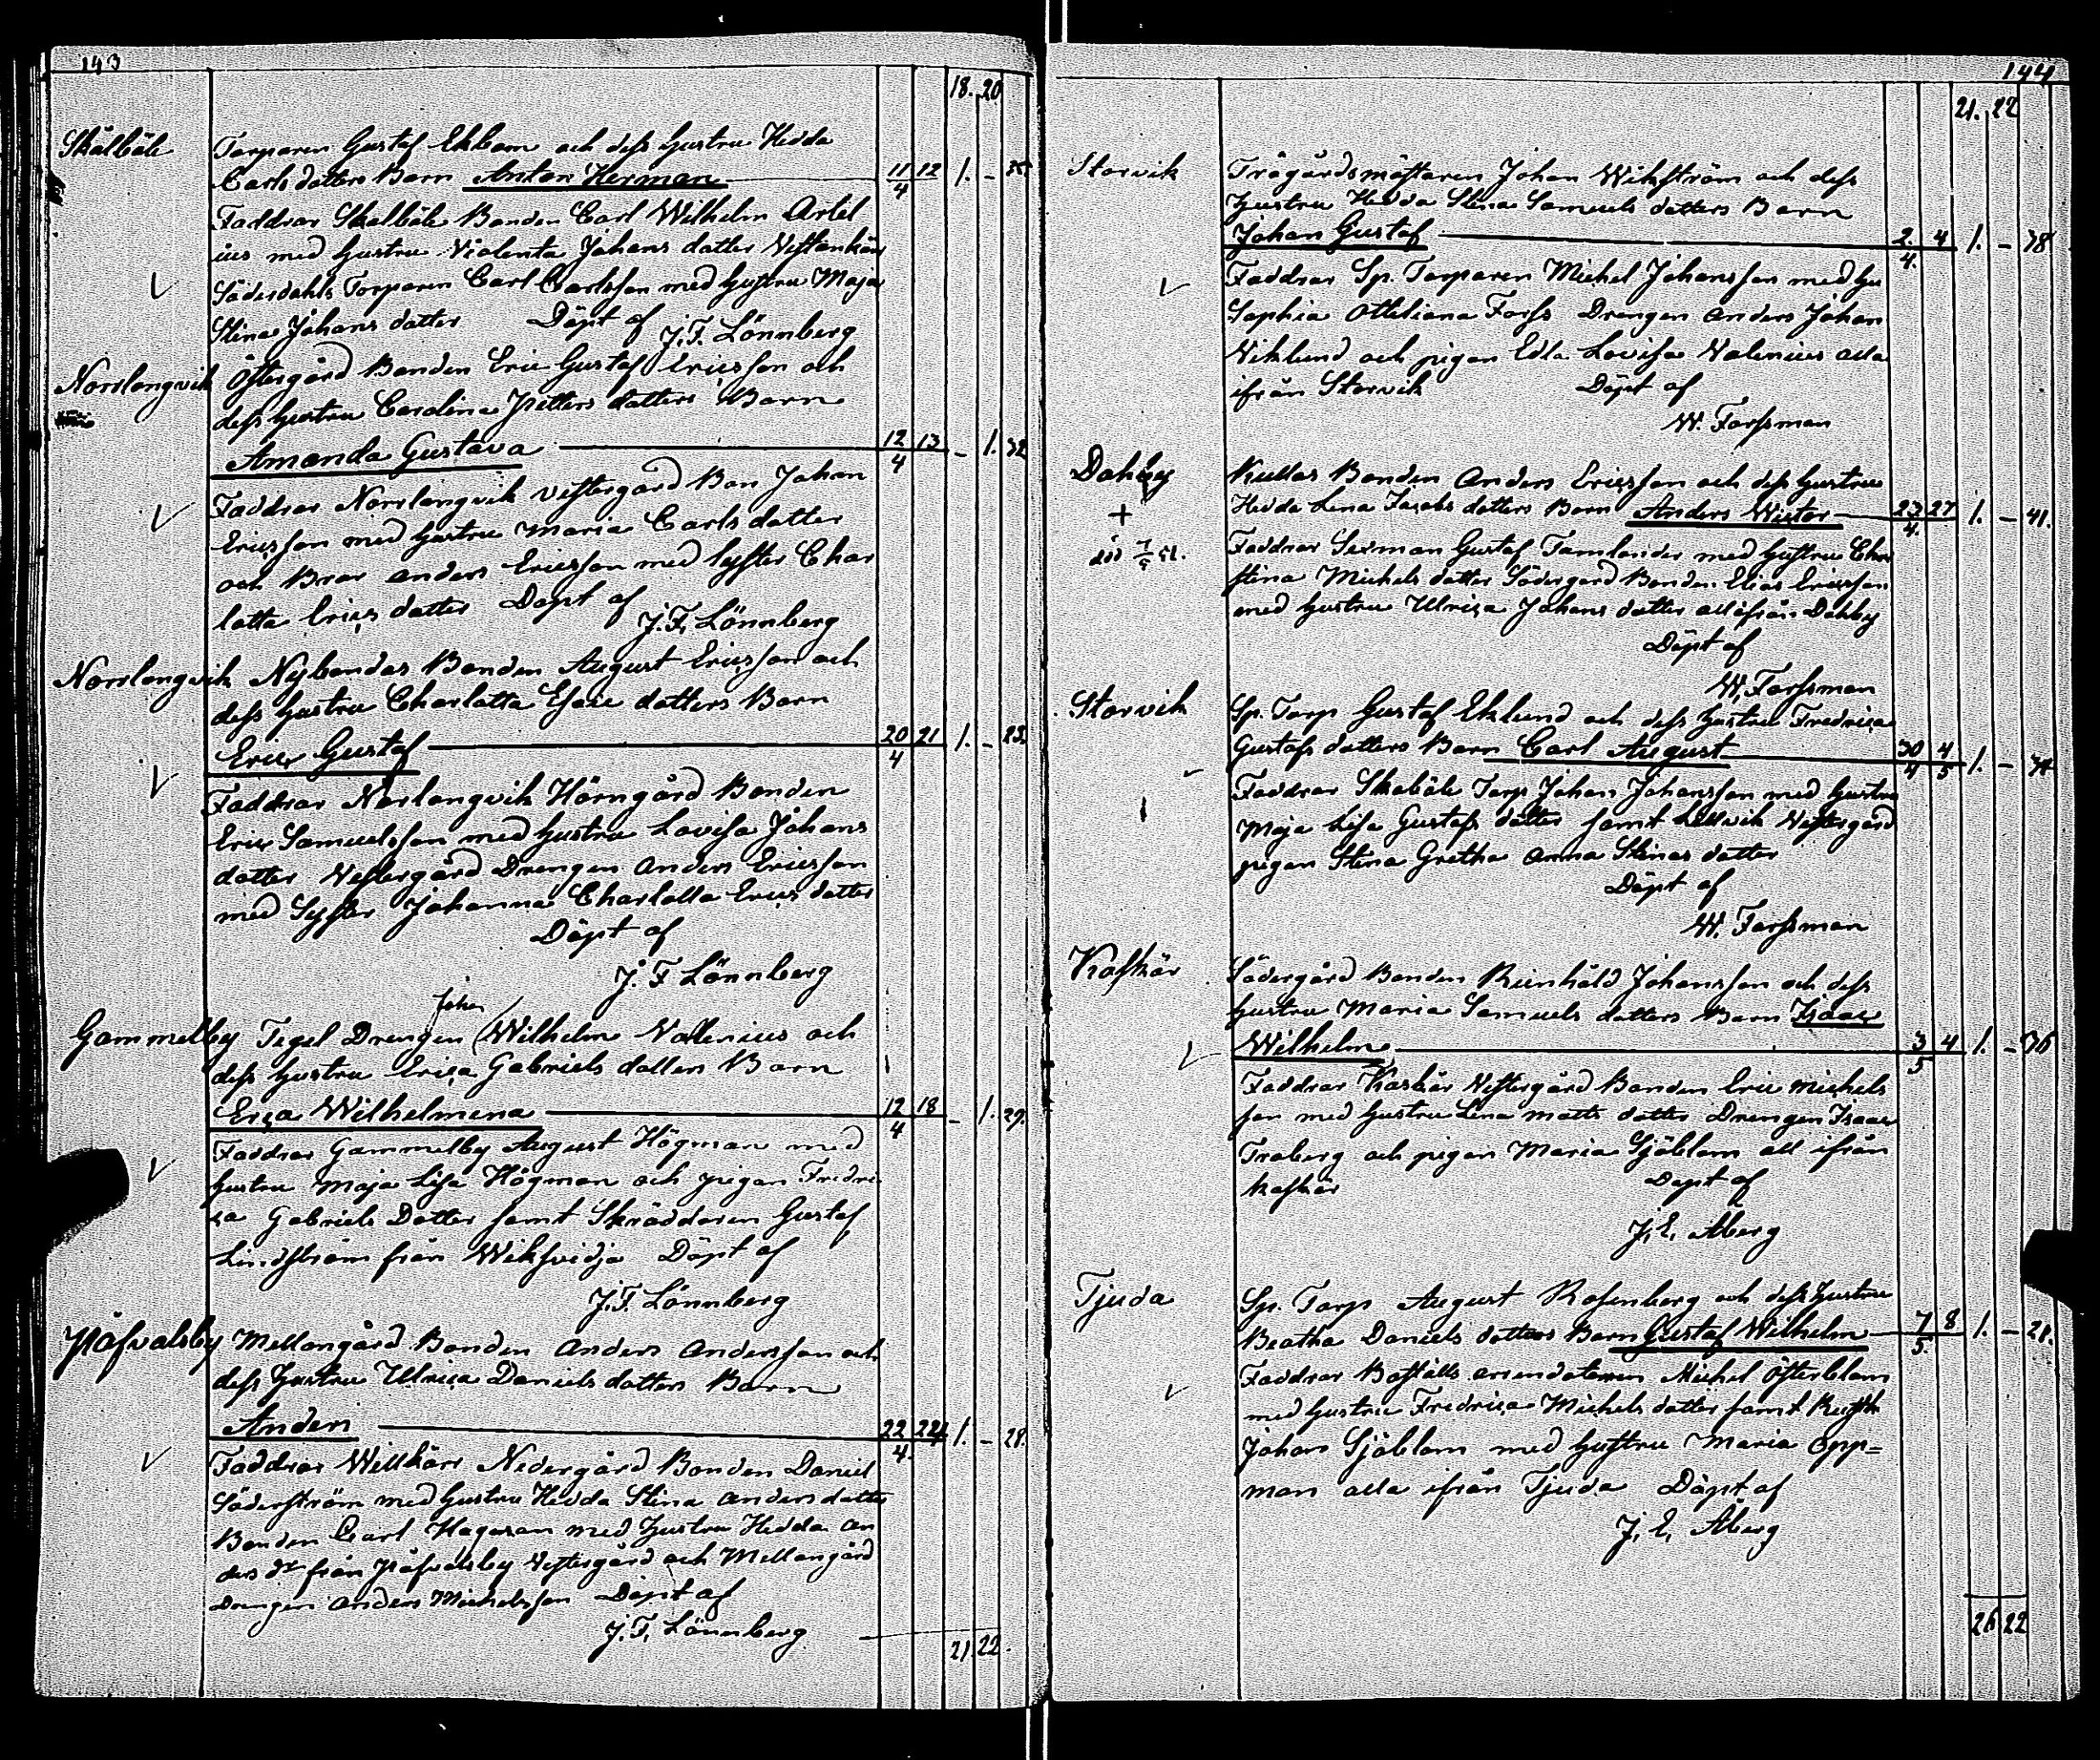 143
18. 20
Skålböle
Torparen Gustaf Ekbom och dess hustru Hedda
Carls dotters Barn Anton Herman 11/4 12 1. –
Faddrar Skalböle Bonden Carl Wilhelm Artel
ius med hustru Violenta Johans dotter Vestankärr
Söderdahls Torparen Carl Carlsson med hustru Maja
Stina Johans dotter Döpt af
J. F. Lönnberg
Norrlongvik Östergård Bonden Eric Gustaf Ericsson och
dess hustru Carolina Petters dotters Barn
Amanda Gustava 12/4 13 – 1. 32
Faddrar Norrlongvik Vestergård Bon Johan
Ericsson med hustru Maria Carls dotter
och Bror Anders Ericsson med syster Char
lotta Erics dotter Döpt af
J. F. Lönnberg
Norrlongvik Nybondas Bonden August Ericsson och
dess hustru Charlotta Esaie dotters Barn
Eric Gustaf 20/4 21 1. – 23.
Faddrar Norlongvik Hörngård Bonden
Eric Samuelsson med hustru Lovisa Johans
dotter Vestergård Drengen Anders Ericsson
med Syster Johanna Charlotta Erics dotter
Döpt af
J. F Lönnberg
Johan
Gammelby Tegel Drengen Wilhelm Valenius och
dess hustru Erica Gabriels dotters Barn
Erica Wilhelmina 12/4 18 – 1. 29.
Faddrar Gammelby August Högman med
hustru Maja Lisa Högman och pigan Fredri
ca Gabriels Dotter samt Skräddaren Gustaf
Lindström från Wiksvidja Döpt af
J. F. Lönnberg
Påfvalsby Mellangård Bonden Anders Andersson och
dess hustru Ulrica Daniels dotters Barn
Anders 22/4 24 1. – 28.
Faddrar Willkärr Nedergård Bonden Daniel
Söderström med hustru Hedda Stina Anders dotter
Bonden Carl Hagman med hustru Hedda An
ders dr från Påfvalsby Vestergård och Mellangård
Drengen Anders Michelsson Döpt af
J. F. Lönnberg
21. 22.
144
21. 22
Storvik Trägårdsmästaren Johan Wikström och dess
hustru Hedda Stina Samuels dotters Barn
Johan Gustaf 2/4 4 1. – 38
Faddrar Sp. Torparen Michel Johansson med hu
Sophia Otteliana Forss Drengen Anders Johan
Viklund och pigan Edla Lovisa Valenius alla
ifrån Storvik Döpt af
W. Forssman
Dahlby Kullas Bonden Anders Ericsson och dess hustru
Hedda Lena Jacobs dotters Barn Anders Wictor 23/4 27 1. – 41.
+
död 7/5 51.
Faddrar Sexman Gustaf Tamlander med hustru Chri
stina Michels dotter Södergård Bonden Elias Ericsson
med hustru Ulrica Johans dotter all ifrån Dahlby
Döpt af
W. Forssman
Storvik Sp. Torp Gustaf Eklund och dess hustru Fredrica
Gustafs dotters Barn Carl August 30/4 4/5 1. – 34
Faddrar Skaböle Torp Johan Johansson med hustru
Maja Lisa Gustafs dotter samt Lellvik Vestergård
pigan Stina Gretha Anna Stinas dotter
Döpt af
W. Forssman
Kaskär Södergård Bonden Reinhåld Johansson och dess
hustru Maria Samuels dotters Barn Isaac
Wilhelm 3/5 4 1. – 36
Faddrar Kaskär Vestergård Bonden Eric Michels
son med hustru Lena Matts dotter Drengen Isaac
Troberg och pigan Maria Sjöblom all ifrån
Kaskär Döpt af
J. E. Åberg
Tjuda Sp. Torp August Rosenberg och dess hustru
Beatha Daniels dotters Barn Gustaf Wilhelm 7/5 8 1. – 28.
Faddrar Boställs arrendatoren Michel Österblom
med hustru Fredrica Michels dotter samt
Johan Sjöblom med hustru Maria Opp=
man alla ifrån Tjuda Döpt af
J. E. Åberg
26 22